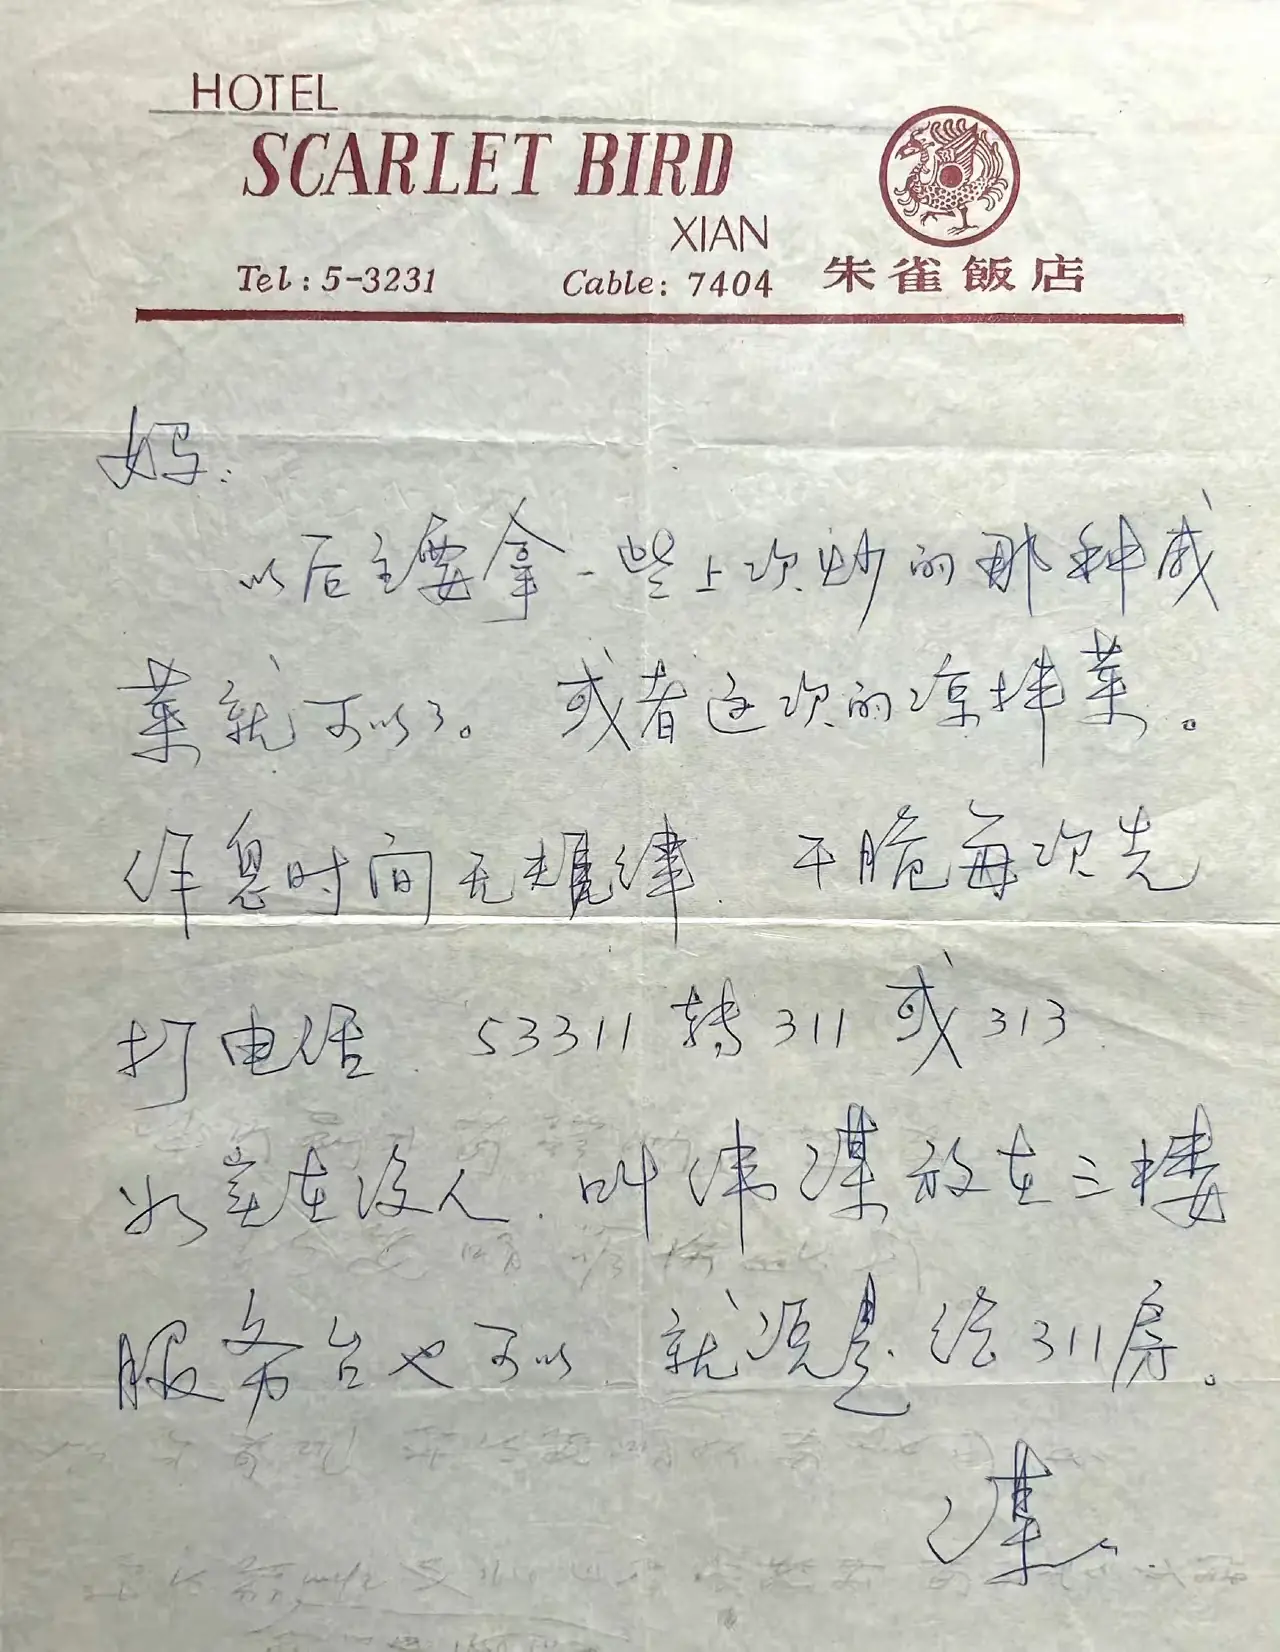 HOTEL
SCARLET BIRD
XIAN
Tel: 5-3231 Cable: 7404 朱雀飯店
妈:
以后主要拿一些上次炒的那种咸
菜就可以了。 或者这次的凉拌菜。
作息时间无规律. 干脆每次先
打电话. 53311 转 311 或 313.
如实在没人. 叫伟谋放在三楼
服务台也可以 就说是给 311 房。
谋